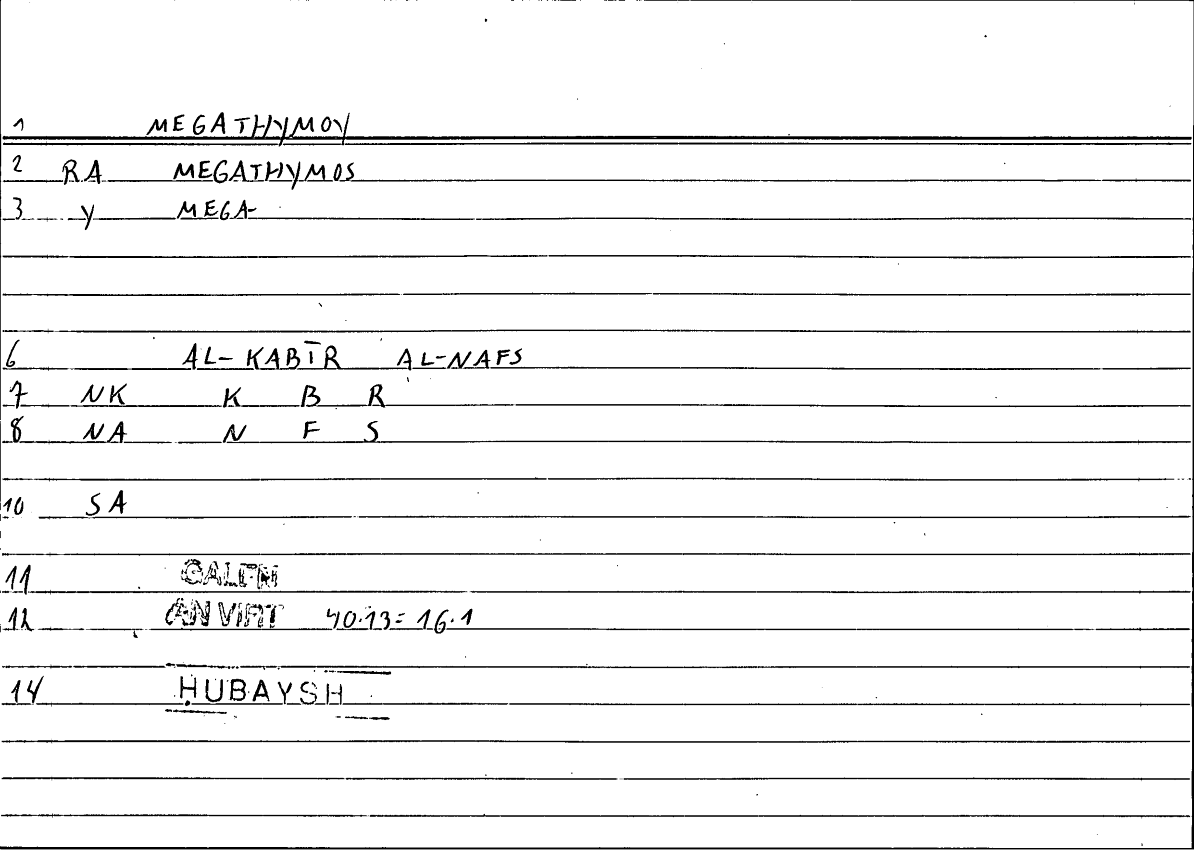 1 MEGATHYMOY
2 RA MEGATHYMOS
3 Y MEGA-
6 AL-KABĪR AL-NAFS
7 NK K B R
8 NA N F S
10 SA
11 GALEN
12 AN VIRT 40.13=16.1
14 ḤUBAYSH